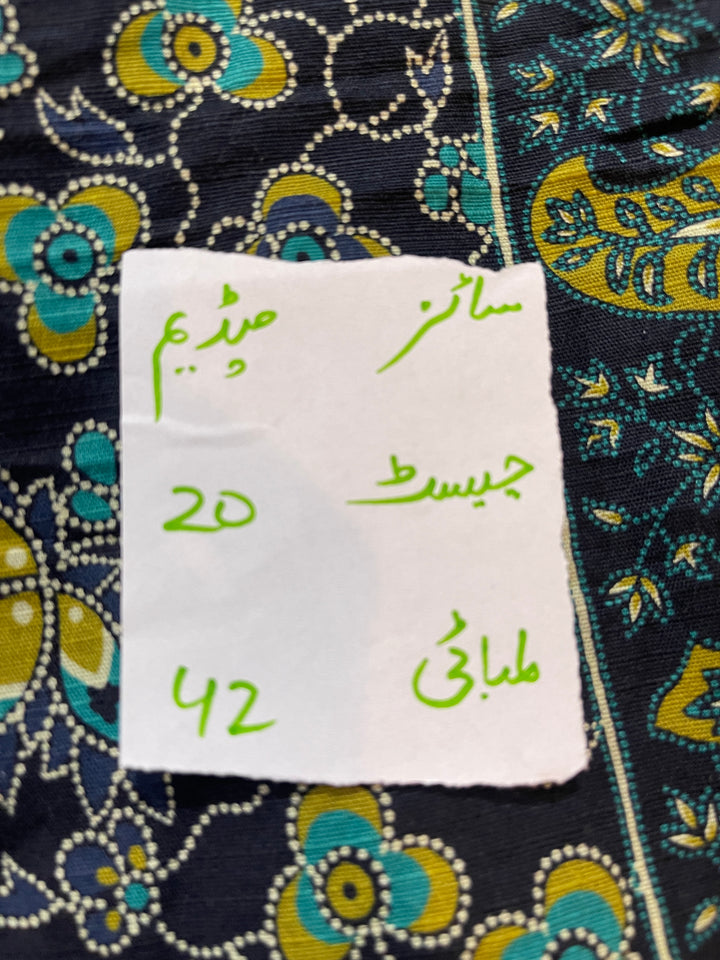 سائز میڈیم
چیسٹ 20
لمبائی 42